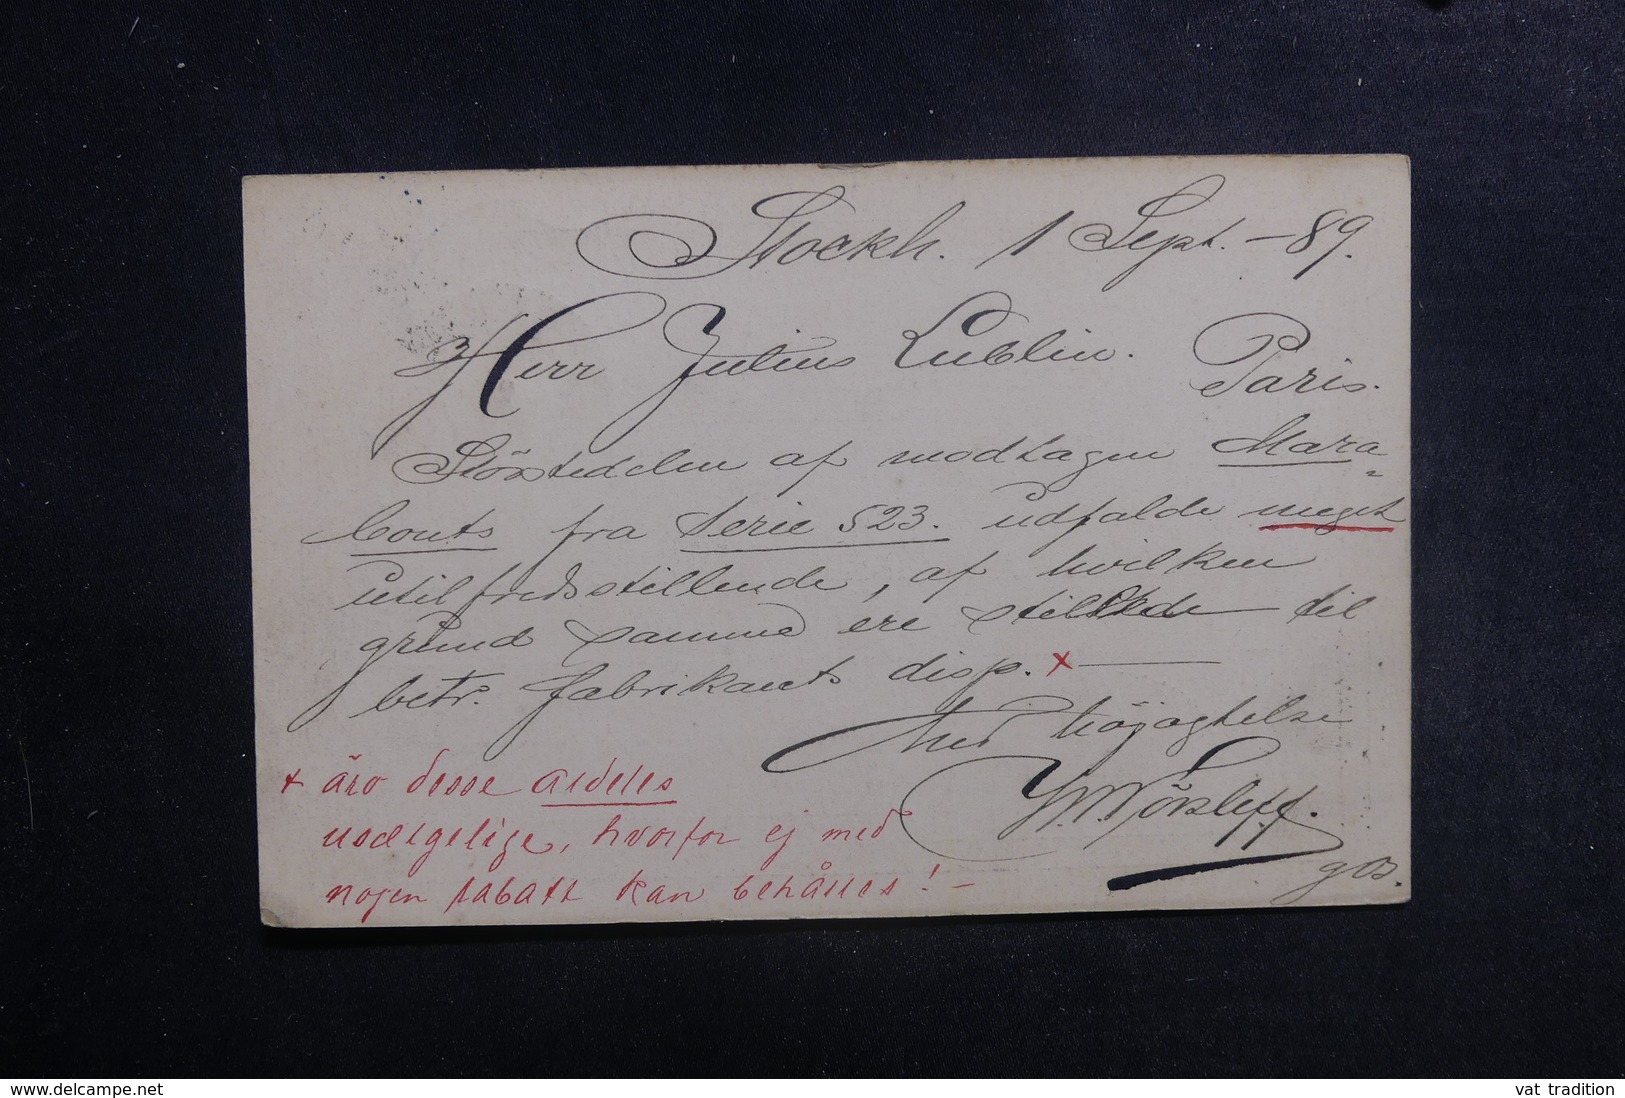 Stockh. 1 Sept. -89.
Herr Julius Lublin. Paris.
Störstedelen af modtagen Mara=
bouts fra Serie 523. udfalde meget
utilfredsstillende, af hvilken
grund samme ere stillede til
betr. fabrikants disp. x —
Med högagtelse
Nörsleff.
x äro desse aldeles
usælgelige, hvorfor ej med
nogen rabatt kan behålles! –
www.delcampe.net
vat tradition